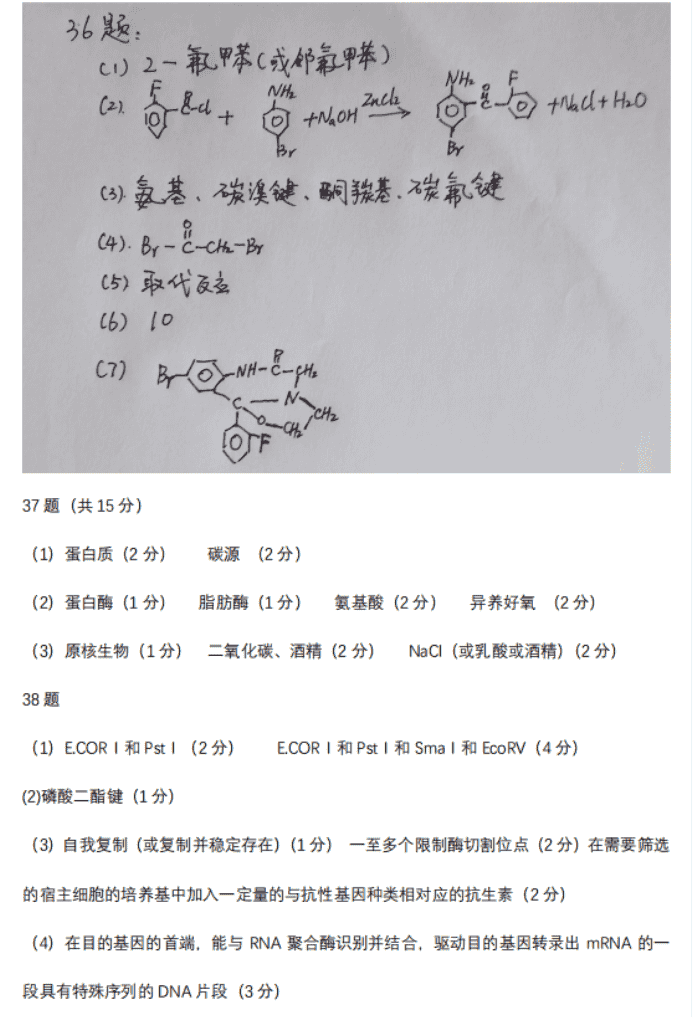 36题:
(1) 2-氟甲苯(或邻氟甲苯)
(2). F O C-Cl + NH2 Br +NaOH ZnCl2 → NH2 O C F Br +NaCl+H2O
(3). 氨基、碳溴键、酮羰基、碳氟键
(4). Br-C-CH2-Br O
(5) 取代反应
(6) 10
(7) Br NH-C-CH2 O N C O CH2 CH2 F
37 题（共 15 分）
（1）蛋白质（2 分） 碳源 （2 分）
（2）蛋白酶（1 分） 脂肪酶（1 分） 氨基酸（2 分） 异养好氧 （2 分）
（3）原核生物（1 分） 二氧化碳、酒精（2 分） NaCl（或乳酸或酒精）（2 分）
38 题
（1）E.COR I 和 Pst I （2 分） E.COR I 和 Pst I 和 Sma I 和 EcoRV（4 分）
(2)磷酸二酯键（1 分）
（3）自我复制（或复制并稳定存在）（1 分） 一至多个限制酶切割位点（2 分）在需要筛选
的宿主细胞的培养基中加入一定量的与抗性基因种类相对应的抗生素（2 分）
（4）在目的基因的首端，能与 RNA 聚合酶识别并结合，驱动目的基因转录出 mRNA 的一
段具有特殊序列的 DNA 片段（3 分）